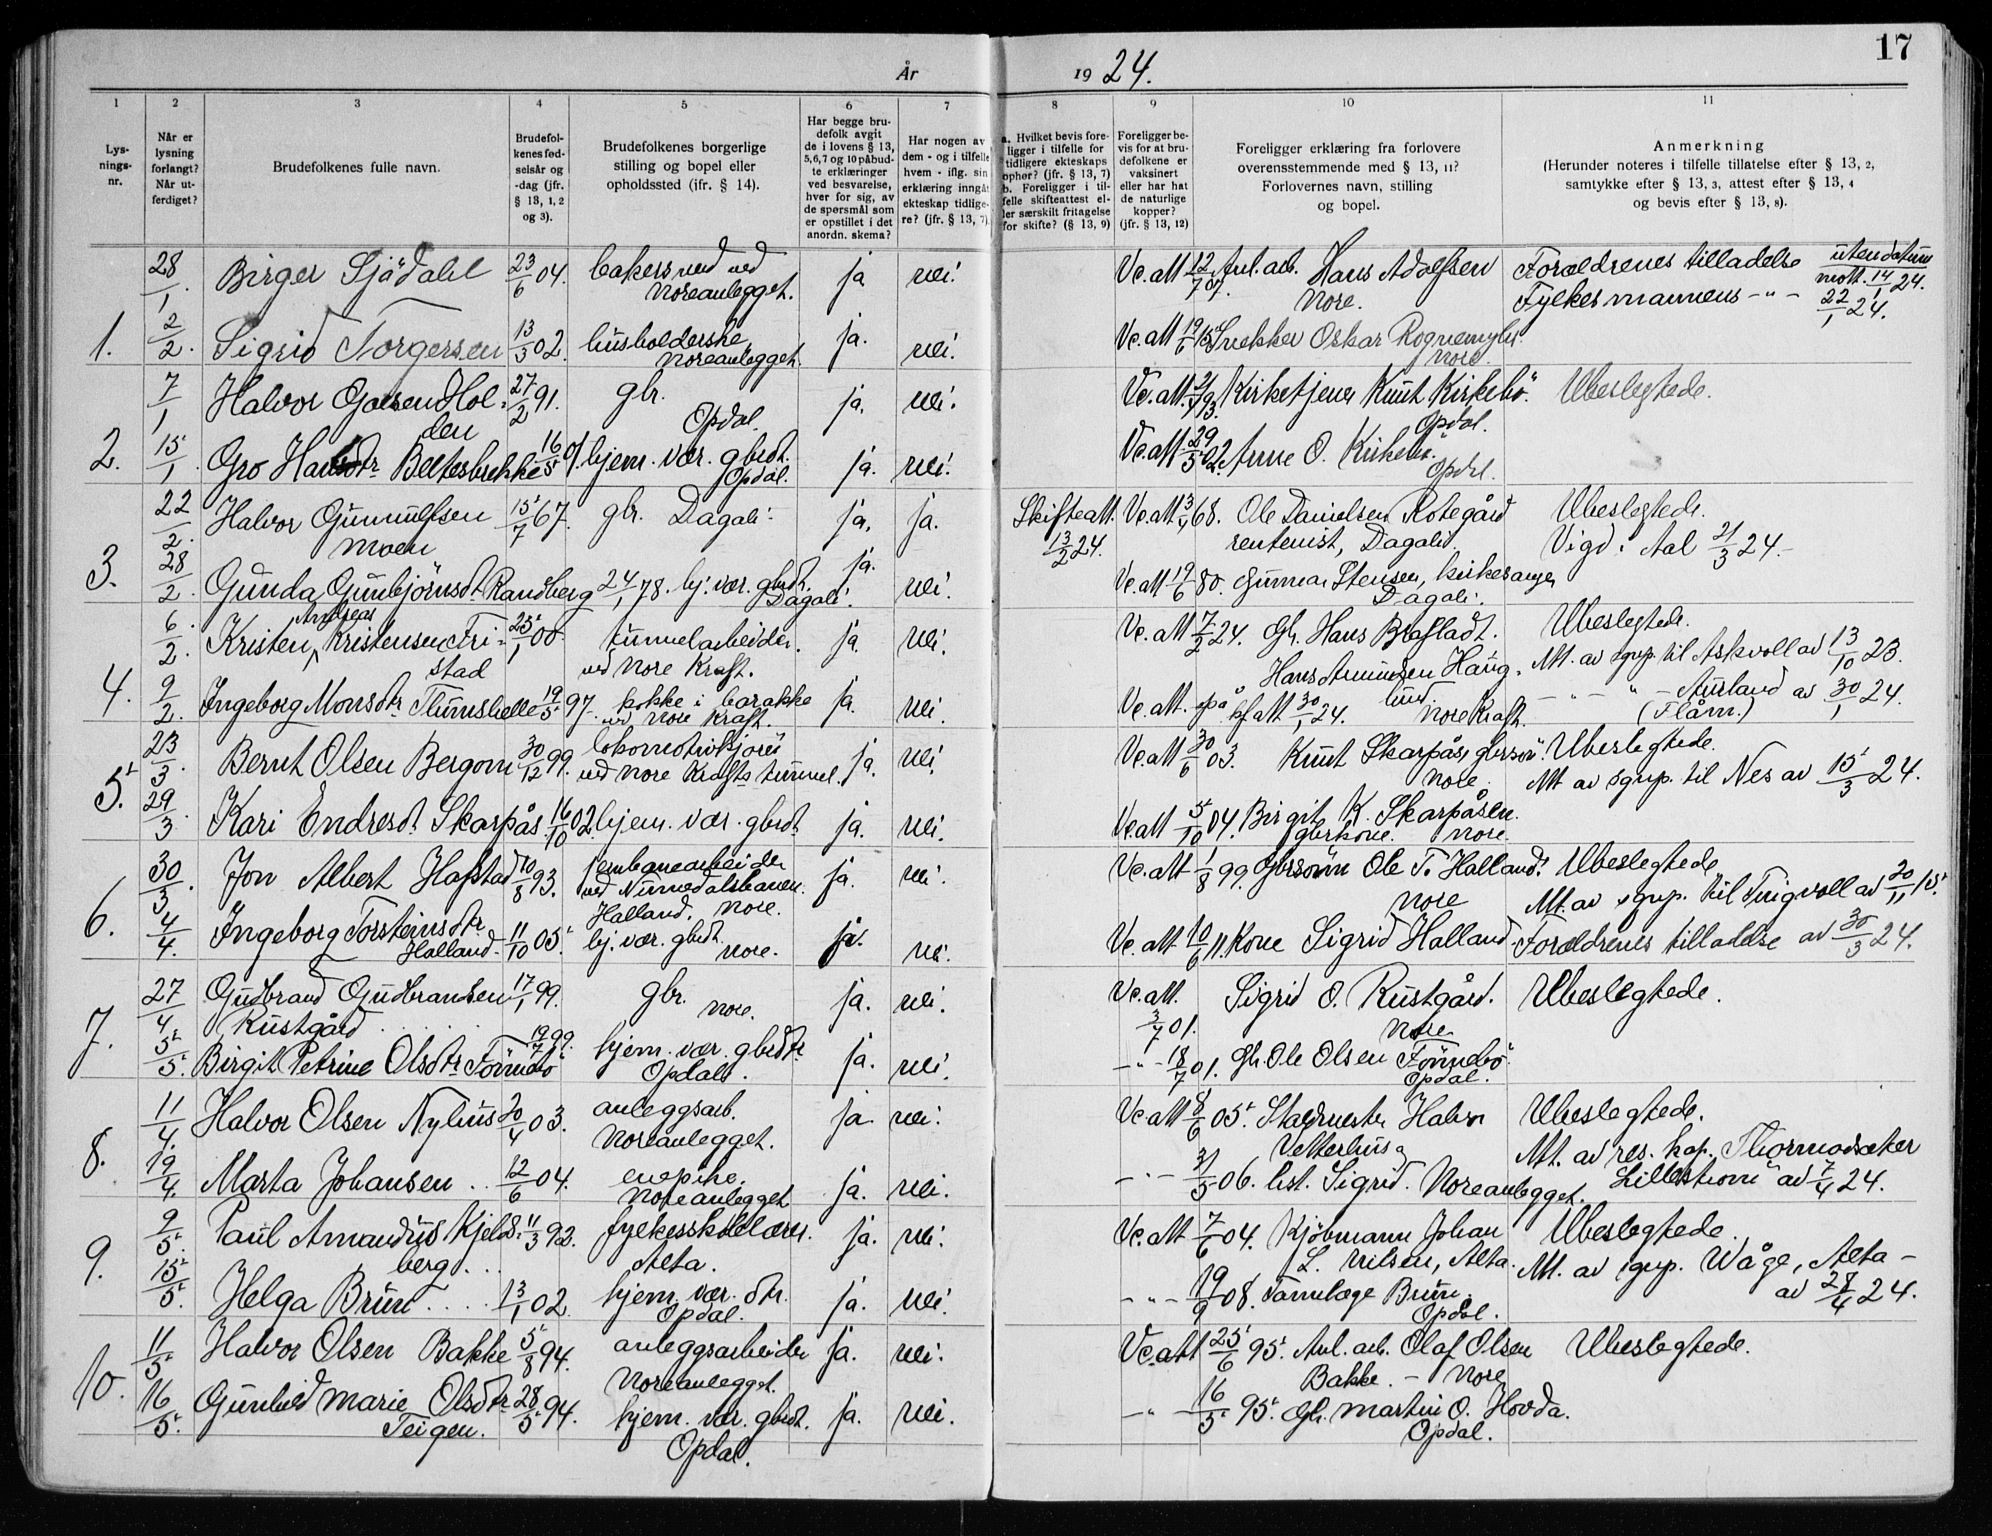 17
År 1924.
1 2 3 4 5 6 7 8 9 10 11
Lys-
nings-
nr.
Når er
lysning
forlangt?
Når ut-
ferdiget?
Brudefolkenes fulle navn.
Brudefol-
kenes fød-
selsår og
-dag (jfr.
§ 13, 1, 2
og 3).
Brudefolkenes borgerlige
stilling og bopel eller
opholdssted (ifr. § 14).
Har begge bru-
defolk avgit
de i lovens § 13,
5,6,7 og 10 påbud-
te erklæringer
ved besvarelse,
hver for sig, av
de spørsmål som
er opstillet i det
anordn. skema?
Har nogen av
dem - og i tilfelle
hvem - iflg. sin
erklæring inngått
ekteskap tidlige-
re? (jfr. § 13, 7).
a. Hvilket bevis fore-
ligger i tilfelle for
tidligere ekteskaps
ophør? (jfr. § 13, 7)
b. Foreligger i til-
felle skifteattest el-
ler særskilt fritagelse
for skifte? (§ 13, 9)
Foreligger be-
vis for at bru-
defolkene er
vaksinert
eller har hat
de naturlige
kopper?
(jfr. § 13, 12)
Foreligger erklæring fra forlovere
overensstemmende med § 13, 11?
Forlovernes navn, stilling
og bopel.
Anmerkning
(Herunder noteres i tilfelle tillatelse efter § 13, 2,
samtykke efter § 13, 3, attest efter § 13, 4
og bevis efter § 13, 8).
28/1 Birger Sjödahl 23/6 04. bakersvend ved ja nei. Vc.att 12/7 07. Anl.arb. Hans Adolfsen Forældrenes tilladelse uten datum
Noreanlegget. Nore. Fylkesmannens -"- mott. 14/1 24.
22/1 24.
1. 2/2. Sigrid Torgersen 13/3 02. husholderske, ja. nei. Vc.att 19/6 15 Snekker Oskar Rognemyhr
Noreanlegget. Nore.
7/1 Halvor Olsen Hol- 27/2 91. gbr. ja. nei. Kirketjener Knut Kirkebö. Ubeslegtede.
den Opdal. Opdal.
2. 15/1. Gro Beltesbrekke 16/5 01. hjem. vær. gbrdt. ja. nei. Vc.att 29/5 02. Anne O. Kirkebö.
Opdal. Opdal.
22/2. Halvor Gunnulfsen 15/7 67. gbr. Dagali. ja. ja. Skifteatt. Vc.att 68. Ole Danielsen Rotegård Ubeslegtede.
Moen 13/2 24. rentenist, Dagali. Vigd i Aal 21/3 24.-
3. 28/2. Gunda Gunbjörnsdt. Randberg 24/1 78. hj. vær. gbrdt. ja. nei. Vc.att 19/6 80. Gunnar Stensen, kirkesanger
Dagali. Dagali.
Andreas
6/2. Kristen Kristensen Fri- 25/1 00 tunnelarbeider. ja. nei. Vc.att 7/2 24. Gbr. Hans Brøfladt. Ubeslegtede.
stad ved Nore Kraft. Hans Amundsen Haug- Att. av sgnp. til Askvoll av 13/10 23.
4. 9/2. Ingeborg Monsdtr Thunshelle 19/5 97. kokke i barakke ja. nei. Vc.att. lund -"-"- Aurland av 30/1 24.
ved Nore Kraft. att 30/1 24. Nore Kraft. (Flåm.)
23/3. Bernt Olsen Bergom 30/12 99. lokomotivkjörer ja. nei. Vc.att 30/6 03. Knut Skarpås, gbrsön. Ubeslegtede.
ved Nore Krafts tunnel. Nore. Att av sgnp. til Nes av 15/3 24.
5. 29/3 Kari Endresdt. Skarpås. 16/10 02. hjem. vær. gbrdt. ja. nei. Vc.att 5/10 04. Birgit K. Skarpåsen.
gbrkone. Nore.
30/3. Jon Albert Hafstad 10/8 93. jernbanearbeider ja. nei. Vc.att 1/8 99. Gbrsönn Ole T. Halland. Ubeslegtede
ved Numedalsbanen. Nore Att. av sgnp. til Tingvoll av 20/11 15.
Halland. Nore.
6. 4/4. Ingeborg Torsteinsdtr. 11/10 05. hj. vær. gbrdt. ja. nei. Vc.att. 10/6 11. Kone Sigrid Halland. Forældrenes tilladelse av 30/3 24.
Halland. Nore.
27/4. Gudbrand Gudbrandsen 17/1 99. gbr. ja. nei. Vc.att. Sigrid O. Rustgård. Ubeslegtede.
Rustgård Nore. 3/7 01. Nore
7. 5/5. Birgit Petrine Olsdtr Tönnebö 19/7 99. hjem. vær. gbrdtr ja. nei. -"- 18/7 01. Gbr. Ole Olsen Tönnebö.
Opdal. Opdal.
11/4. Halvor Olsen Nylius 20/4 03. anleggsarb. ja nei. Vc.att 8/6 05. Halvor Ubeslegtede.
Noreanlegget. Vetterhus Att. av res. kap. Thormodsæter
8. 19/4. Marta Johansen.. 12/6 04. enepike. ja. nei. -"- 31/5 06. Sigrid. Noreanlegget. Lilleström av 7/4 24.
Noreanlegget
9/5. Paul Amandus Kjelds- 11/3 92. fylkesskolelærer. ja. nei. Vc.att 7/6 04. Kjöbmann Johan Ubeslegtede.
berg... Alta. L. Nilsen, Alta. Att. av sgnp. Wåge, Alta -
9. 15/5. Helga Brun.... 13/1 02. hjem. vær. dtr. ja. nei. -"- 19/9 08. Tannlæge Brun. av 28/4 24.
Opdal. Opdal.
11/5. Halvor Olsen Bakke 5/8 94. anleggsarbeider ja. nei. Vc.att 25/6 95. Anl. arb. Olaf Olsen Ubeslegtede.
Noreanlegget. Bakke. - Nore
10. 16/5. Gunhild Marie Olsdtr 28/5 94. hjem. vær. gbrdt. ja. nei. -"- 16/5 95. Gbr. Martin O. Hovda.
Teigen. Opdal. Opdal.